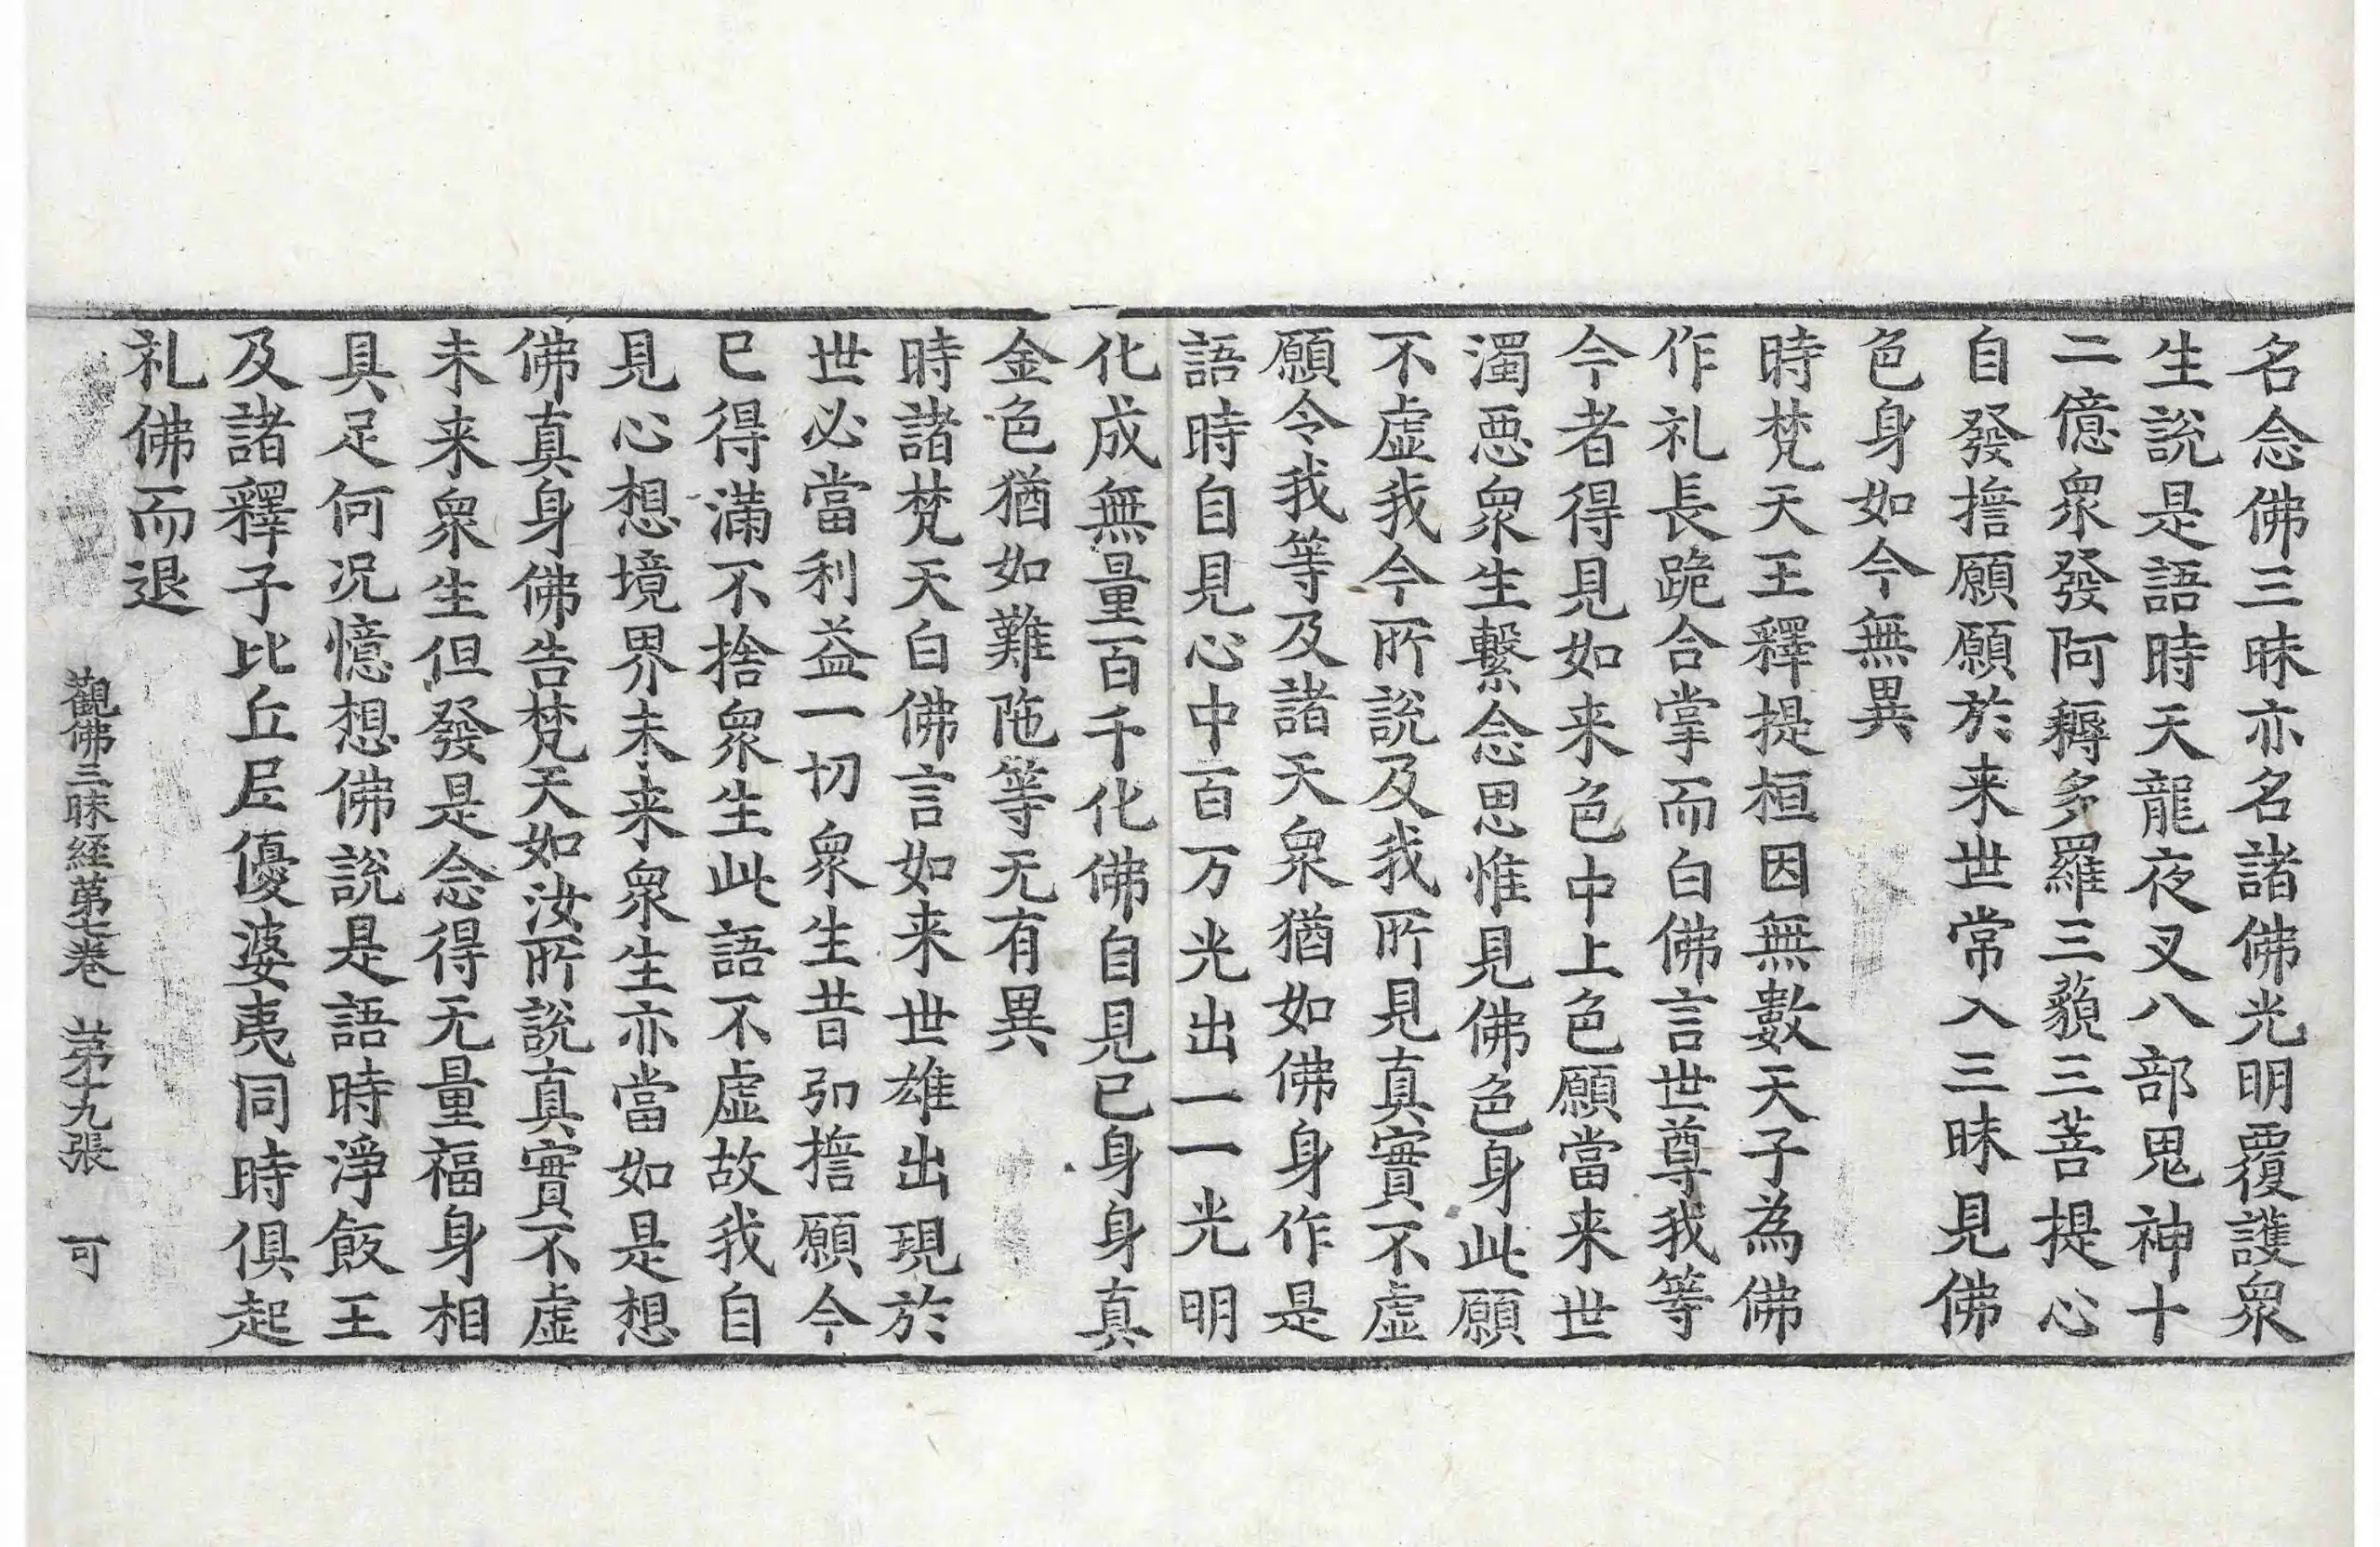 名念佛三昧亦名諸佛光明覆護衆
生說是語時天龍夜叉八部鬼神十
二億衆發阿耨多羅三藐三菩提心
自發擔願願於来世常入三昧見佛
色身如今無異
時梵天王釋提桓因無數天子為佛
作礼長跪合掌而白佛言世尊我等
今者得見如来色中上色願當来世
濁惡衆生繫念思惟見佛色身此願
不虛我今所說及我所見真實不虛
願令我等及諸天衆猶如佛身作是
語時自見心中百万光出一一光明
化成無量百千化佛自見已身身真
金色猶如難陁等无有異
時諸梵天白佛言如来世雄出現於
世必當利益一切衆生昔弘擔願今
已得滿不捨衆生此語不虛故我自
見心想境界未来衆生亦當如是想
佛真身佛告梵天如汝所說真實不虛
未来衆生但發是念得无量福身相
具足何况憶想佛說是語時淨飯王
及諸釋子比丘尼優婆夷同時俱起
礼佛而退
觀佛三昧経第七卷 苐十九張 可